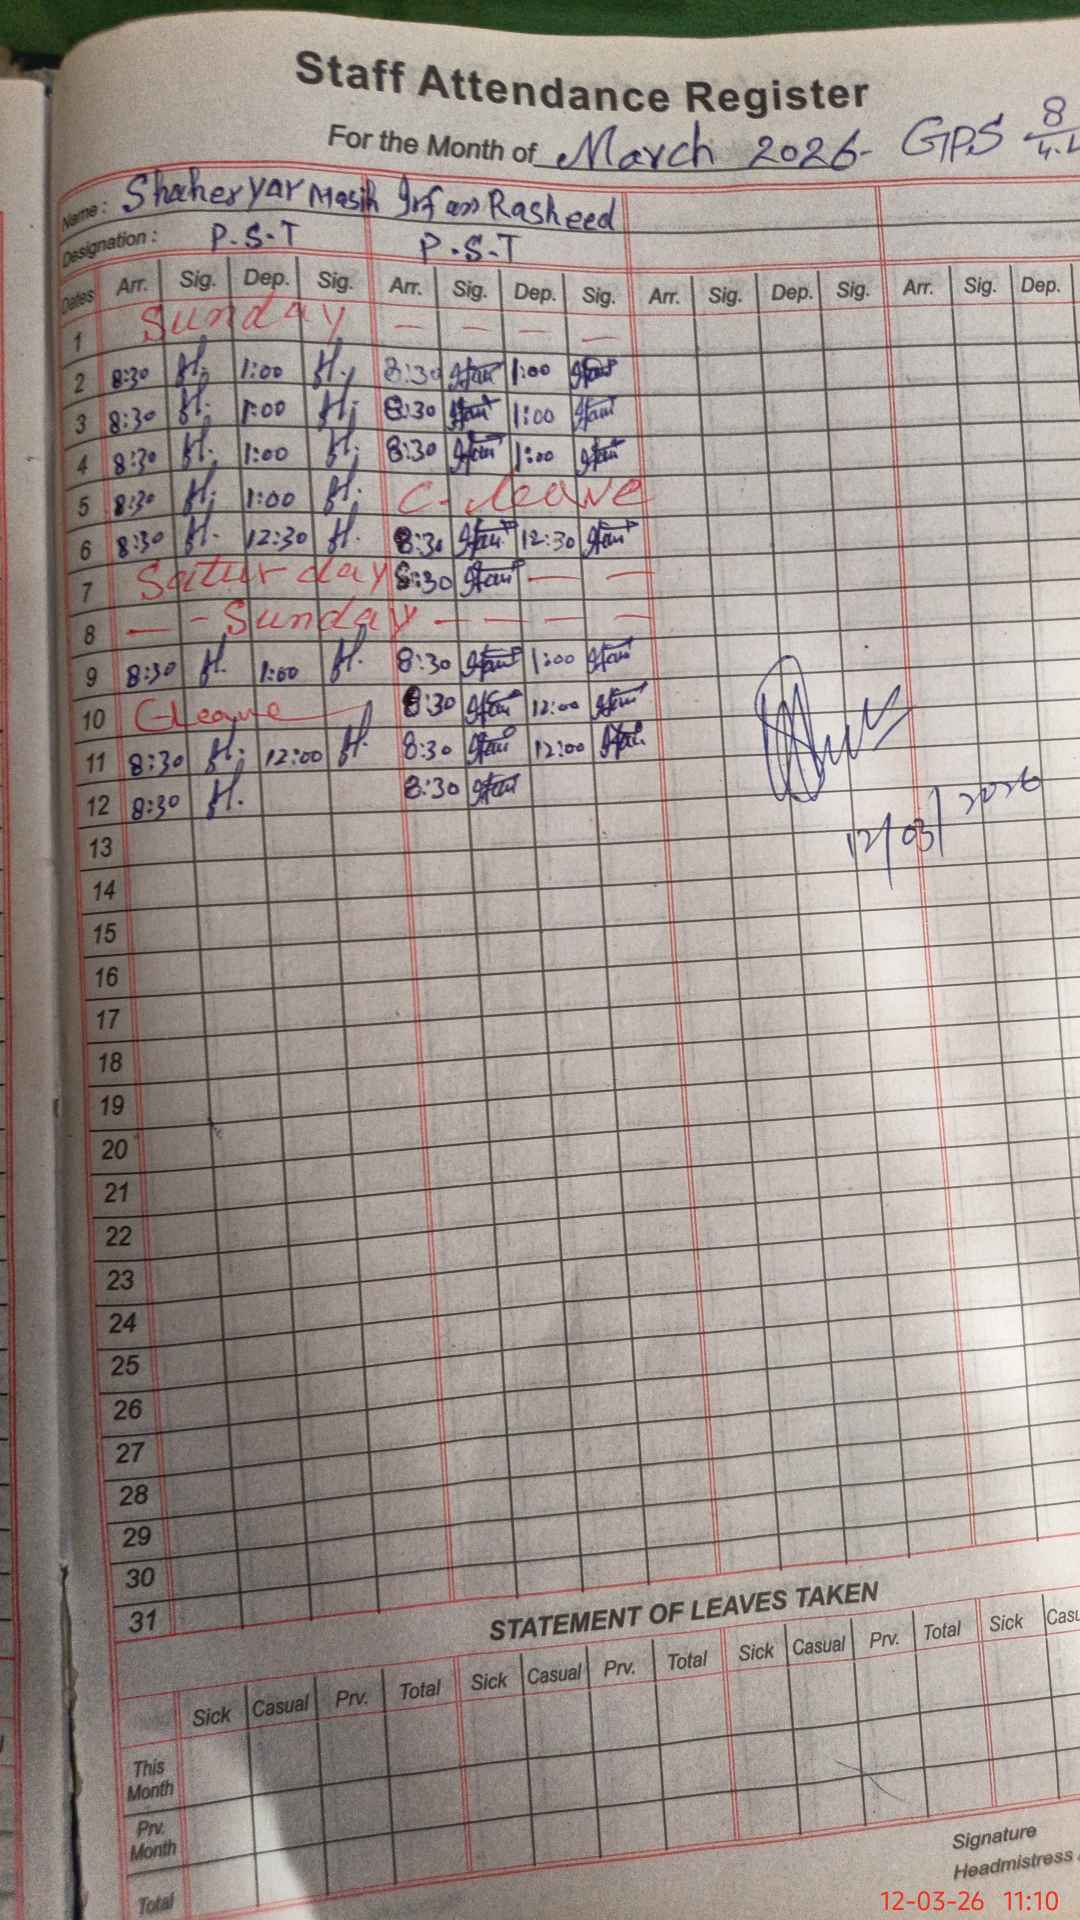 Staff Attendance Register
For the Month of March 2026- GPS 8
Name: Shaheryar Masih Irfan Rasheed
Designation: P.S.T P.S.T
Dates Arr. Sig. Dep. Sig. Arr. Sig. Dep. Sig. Arr. Sig. Dep. Sig. Arr. Sig. Dep.
1 Sunday — — — —
2 8:30 1:00 8:30 1:00
3 8:30 1:00 8:30 1:00
4 8:30 1:00 8:30 1:00
5 8:30 1:00 C-leave
6 8:30 12:30 8:30 12:30
7 Saturday 8:30 — —
8 — - Sunday - — — —
9 8:30 1:00 8:30 1:00
10 C-leave 8:30 12:00
11 8:30 12:00 8:30 12:00
12 8:30 8:30
12/03/2026
13
14
15
16
17
18
19
20
21
22
23
24
25
26
27
28
29
30
31
STATEMENT OF LEAVES TAKEN
Sick Casual Prv. Total Sick Casual Prv. Total Sick Casual Prv. Total Sick
This Month
Prv. Month
Total
Signature
Headmistress
12-03-26 11:10